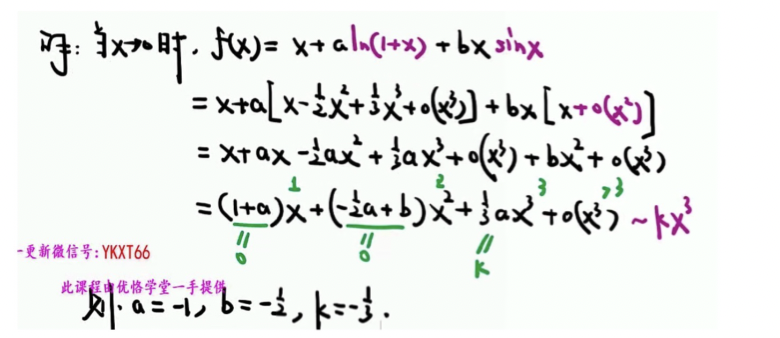 解: 当x→0时, f(x) = x + a ln(1+x) + bx sinx
= x+a[x-½x²+⅓x³+o(x³)] + bx[x+o(x²)]
= x+ax-½ax²+⅓ax³+o(x³)+bx²+o(x³)
1 2 3 >3
= (1+a)x+(-½a+b)x²+⅓ax³+o(x³) ~ kx³
= = =
0 0 k
-更新微信号:YKXT66
此课程由优恪学堂一手提供
则. a=-1, b=-½, k=-⅓.